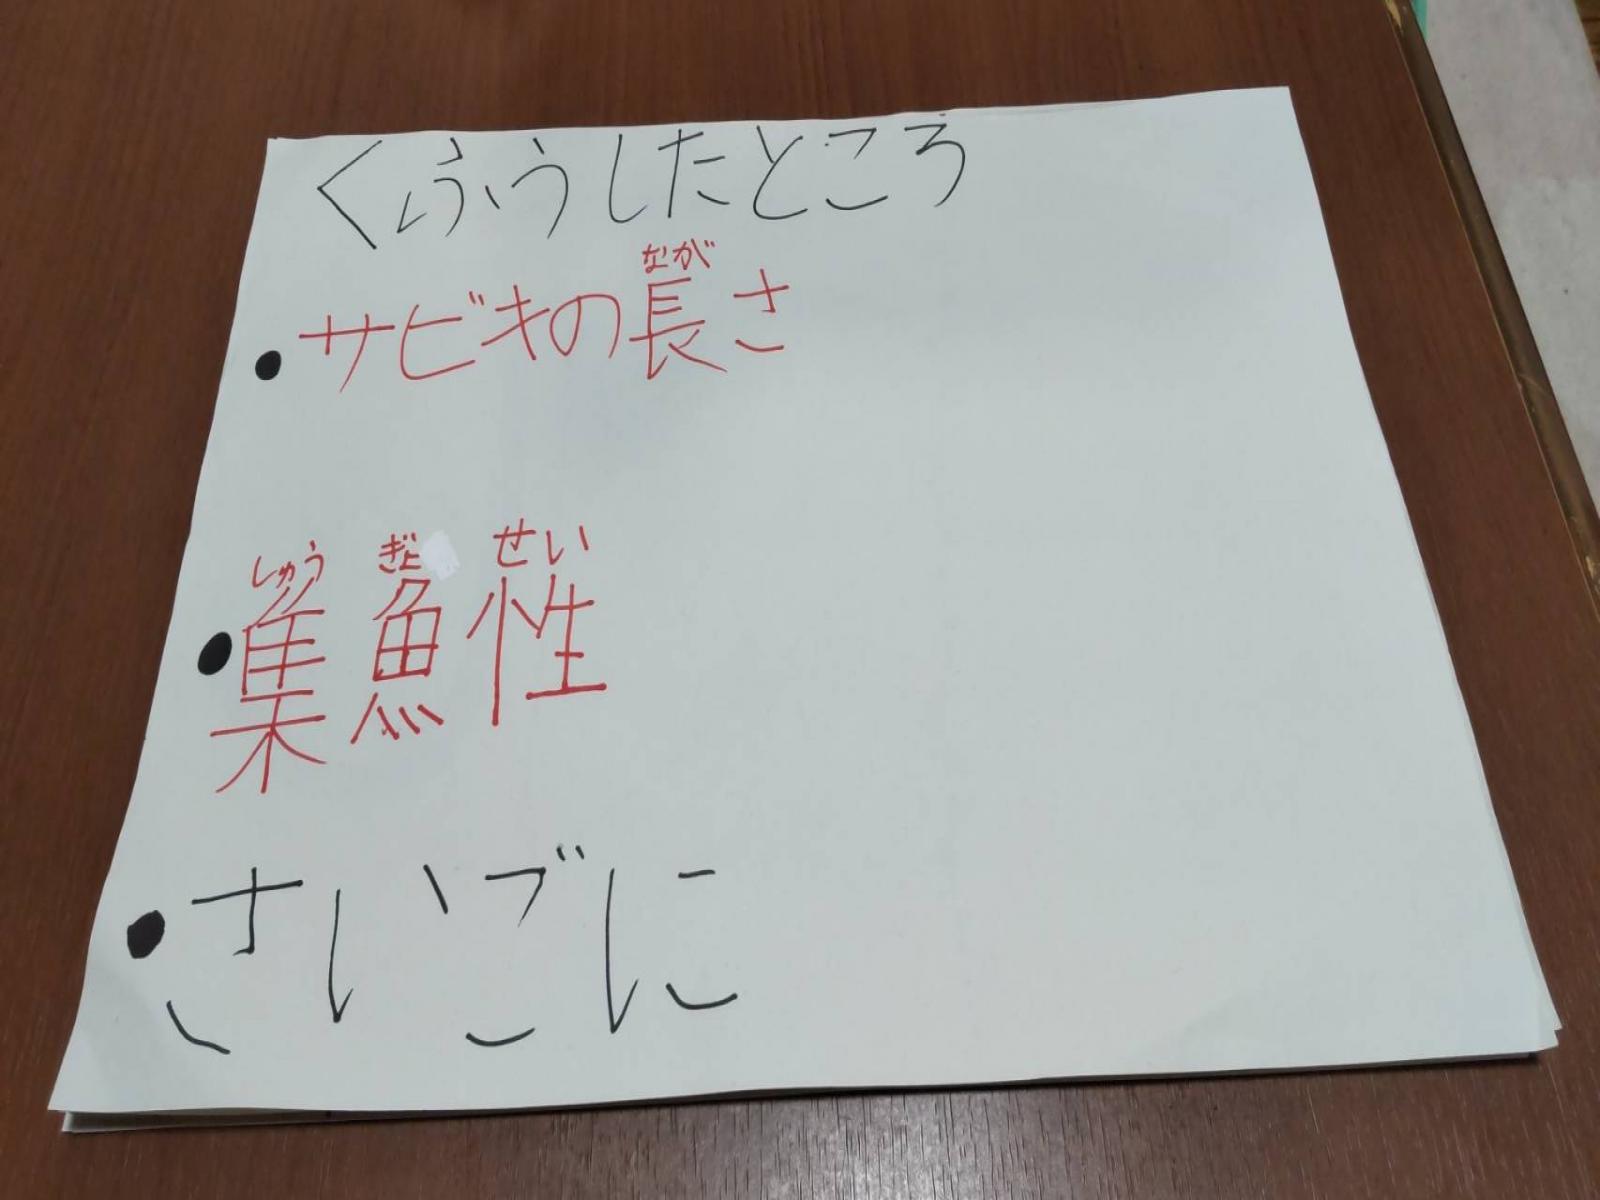 くふうしたところ
なが
・サビキの長さ
しゅう ぎょ せい
・集魚性
・さいごに